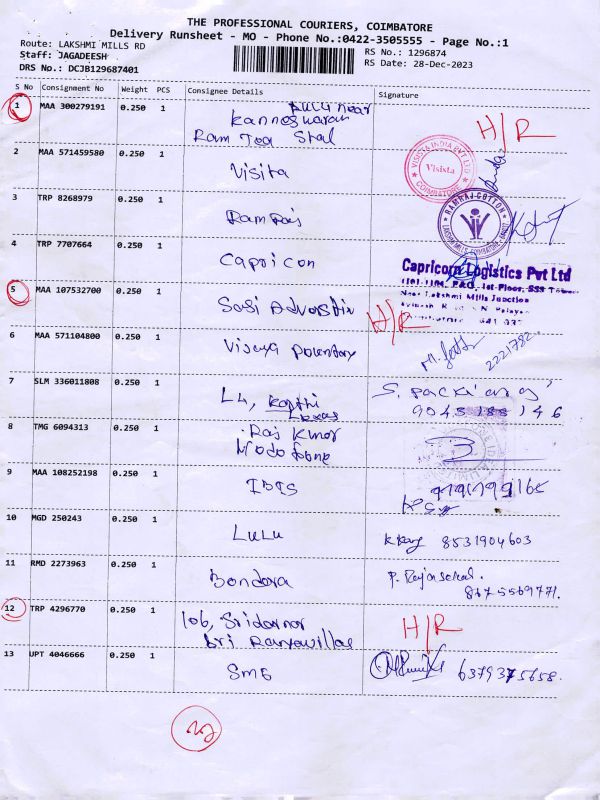 THE PROFESSIONAL COURIERS, COIMBATORE
Delivery Runsheet - MO - Phone No.:0422-3505555 - Page No.:1
Route: LAKSHMI MILLS RD
RS No.: 1296874
Staff: JAGADEESH
RS Date: 28-Dec-2023
DRS No.: DCJB129687401
S No Consignment No Weight PCS Consignee Details Signature
1 MAA 300279191 0.250 1 near
Kanneswaran
Ram Tea Stal H/R
2 MAA 571459580 0.250 1
Visita
VISISTA INDIA PVT LTD
Visista
COIMBATORE
3 TRP 8268979 0.250 1
Ramraj
RAMRAJ COTTON
4 TRP 7707664 0.250 1
Capricon
Capricorn Logistics Pvt Ltd
1st Floor, SSS Tower
Near Lakshmi Mills Junction
5 MAA 107532700 0.250 1
Sasi H/R
6 MAA 571104800 0.250 1
Vijaya 2221782
7 SLM 336011808 0.250 1
L4, S. Packiaraj
8 TMG 6094313 0.250 1
Raj Kmar
Modofone
9 MAA 108252198 0.250 1
IBIS
10 MGD 250243 0.250 1
LULU 8531904603
11 RMD 2273963 0.250 1
Bondora P. Rajasekar.
8675569771.
12 TRP 4296770 0.250 1
106, H/R
Sri
13 UPT 4046666 0.250 1
SMG 6379375658.